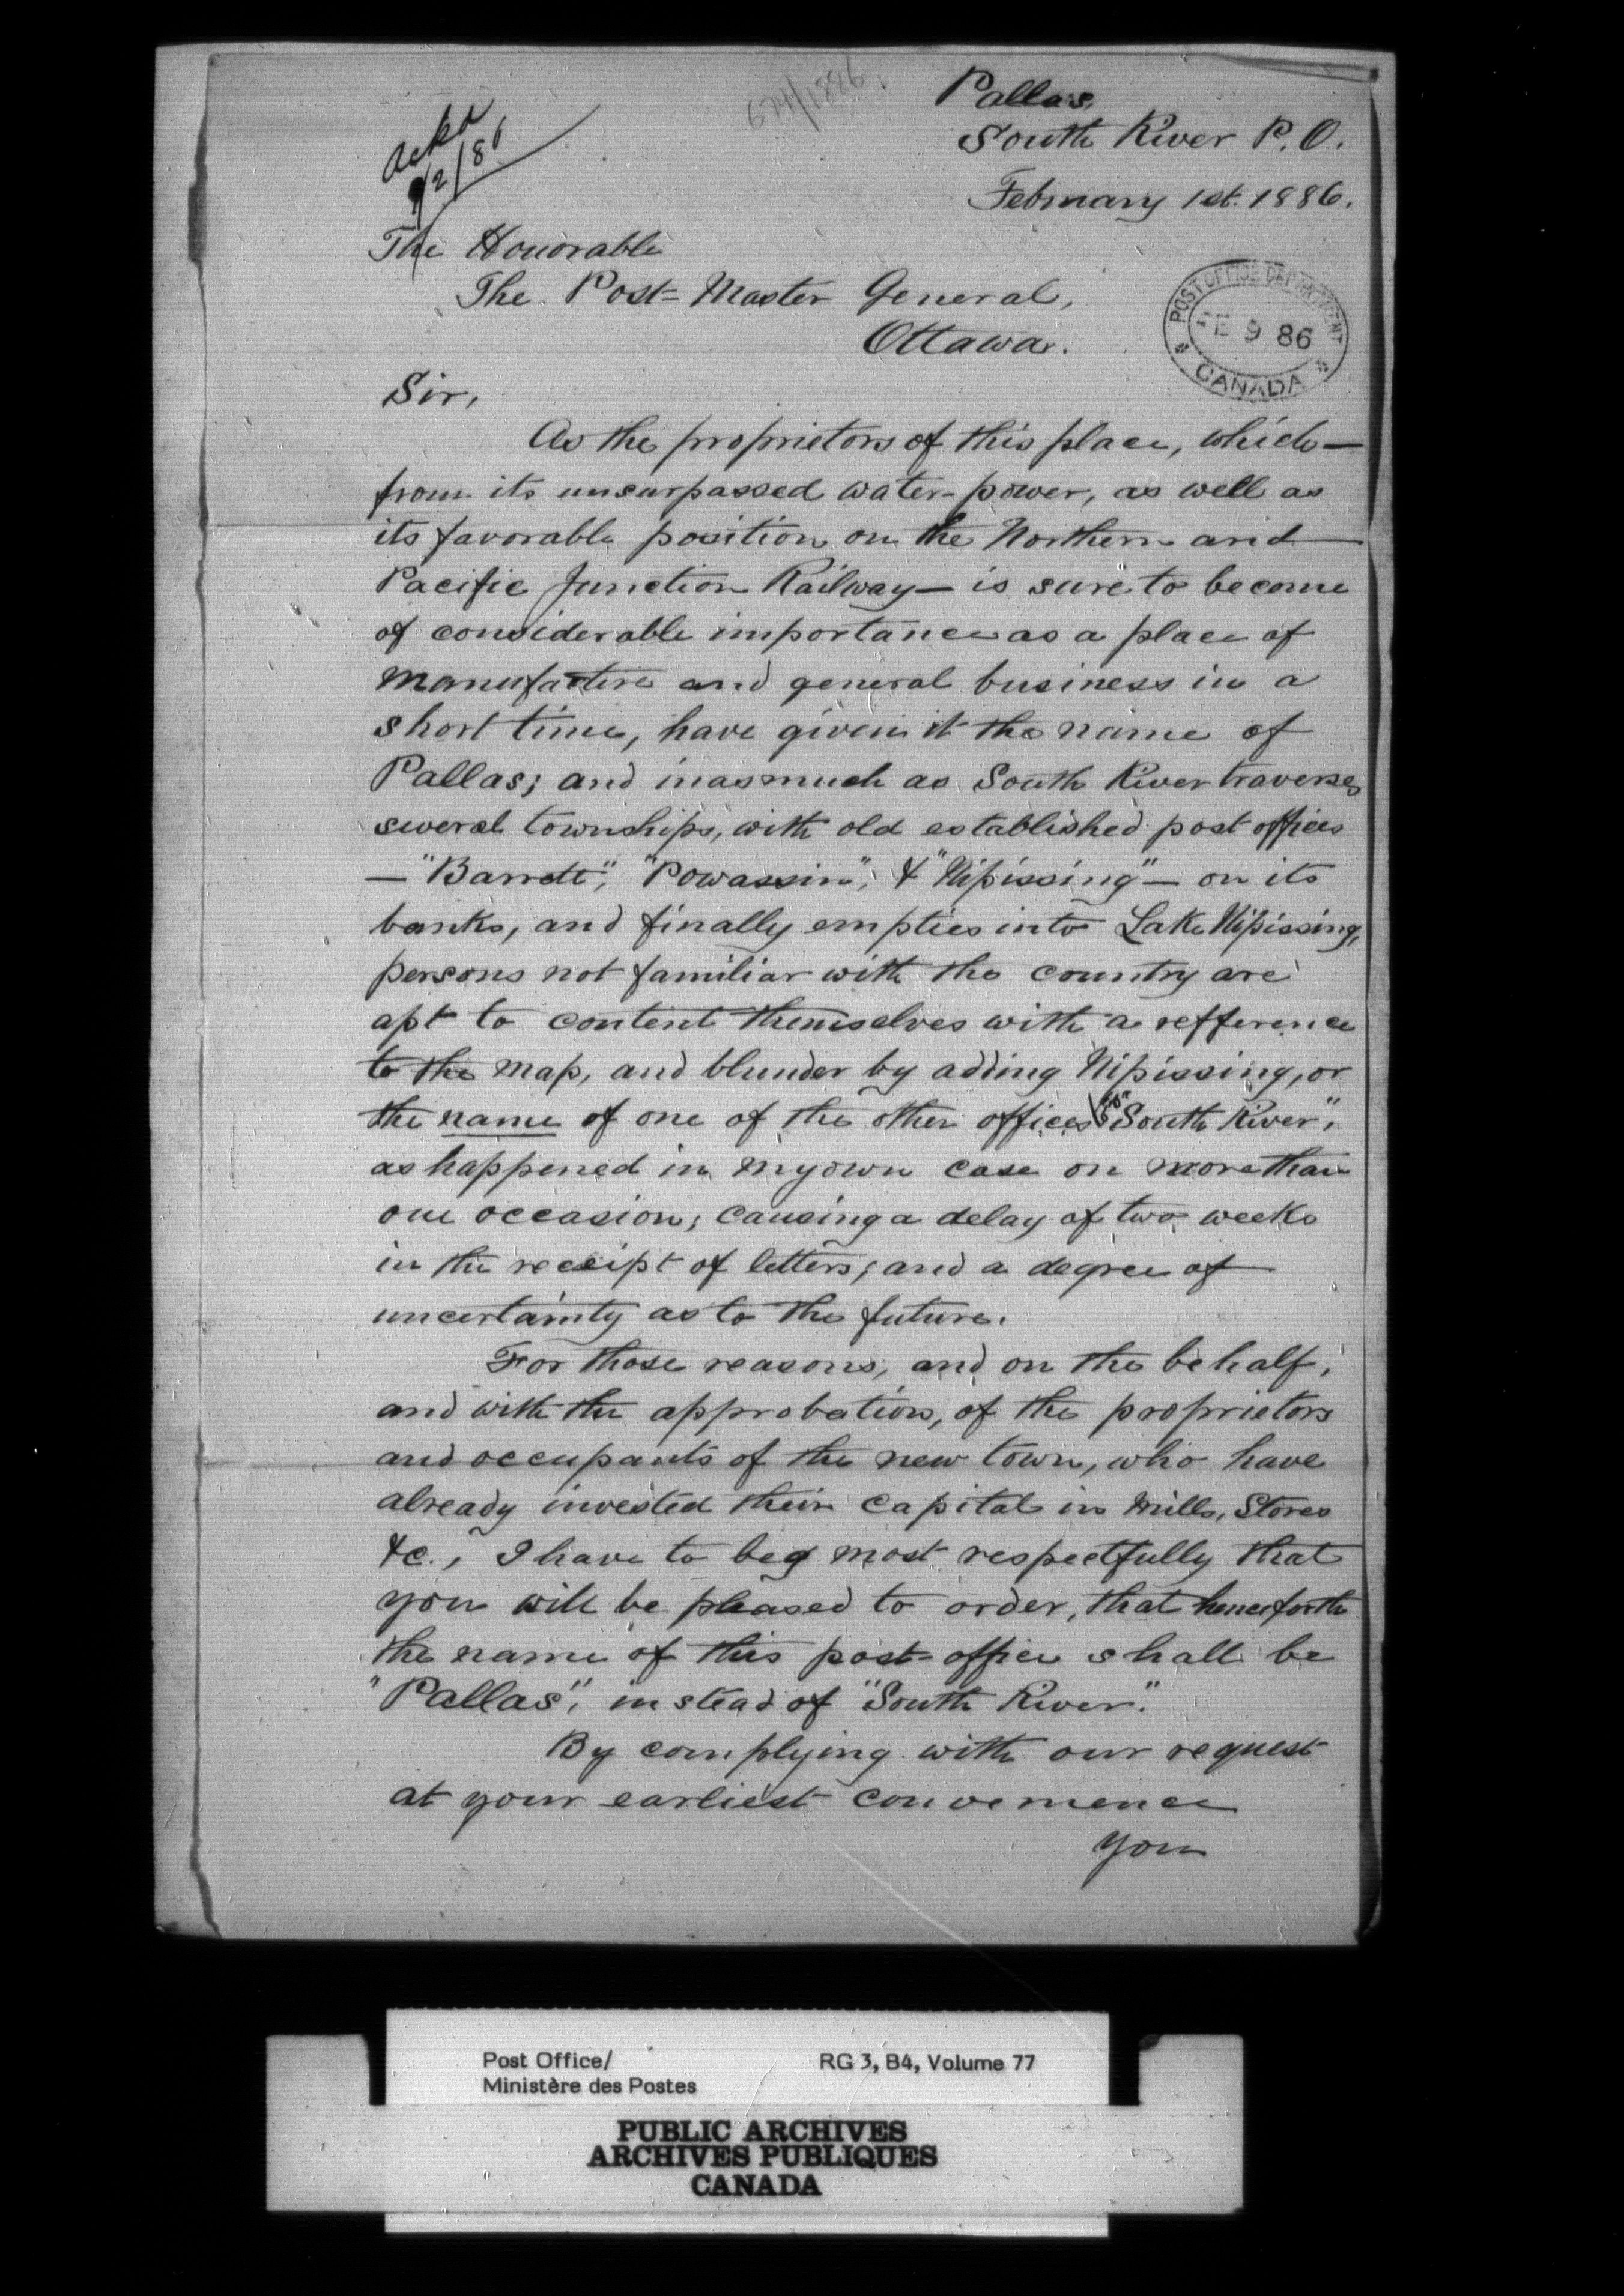 674/1886.
Ackd
9/2/86
Pallas,
South River P. O.
February 1st. 1886.
The Honorable
The Post-Master General,
Ottawa.
POST OFFICE DEPARTMENT
FE 9 86
CANADA
Sir,
As the proprietors of this place, which—
from its unsurpassed water-power, as well as
its favorable position on the Northern and
Pacific Junction Railway— is sure to become
of considerable importance as a place of
manufacture and general business in a
short time, have given it the name of
Pallas; and inasmuch as South River traverses
several townships, with old established post offices
— "Barrett", "Powassin", & "Nipissing" — on its
banks, and finally empties into Lake Nipissing,
persons not familiar with the country are
apt to content themselves with a refference
to the map, and blunder by adding Nipissing, or
the name of one of the other offices to "South River",
as happened in my own case on more than
one occasion; causing a delay of two weeks
in the receipt of letters; and a degree of
uncertainty as to the future.
For those reasons, and on the behalf,
and with the approbation, of the proprietors
and occupants of the new town, who have
already invested their capital in Mills, Stores
&c., I have to beg most respectfully that
you will be pleased to order, that henceforth
the name of this post-office shall be
"Pallas", instead of "South River".
By complying with our request
at your earliest convenience
you
Post Office/
Ministère des Postes
RG 3, B4, Volume 77
PUBLIC ARCHIVES
ARCHIVES PUBLIQUES
CANADA